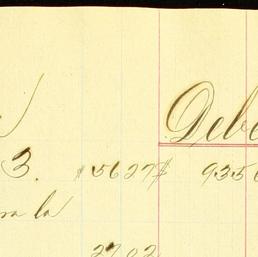 Debe
3. $5627 $ 9356
ra la
2702